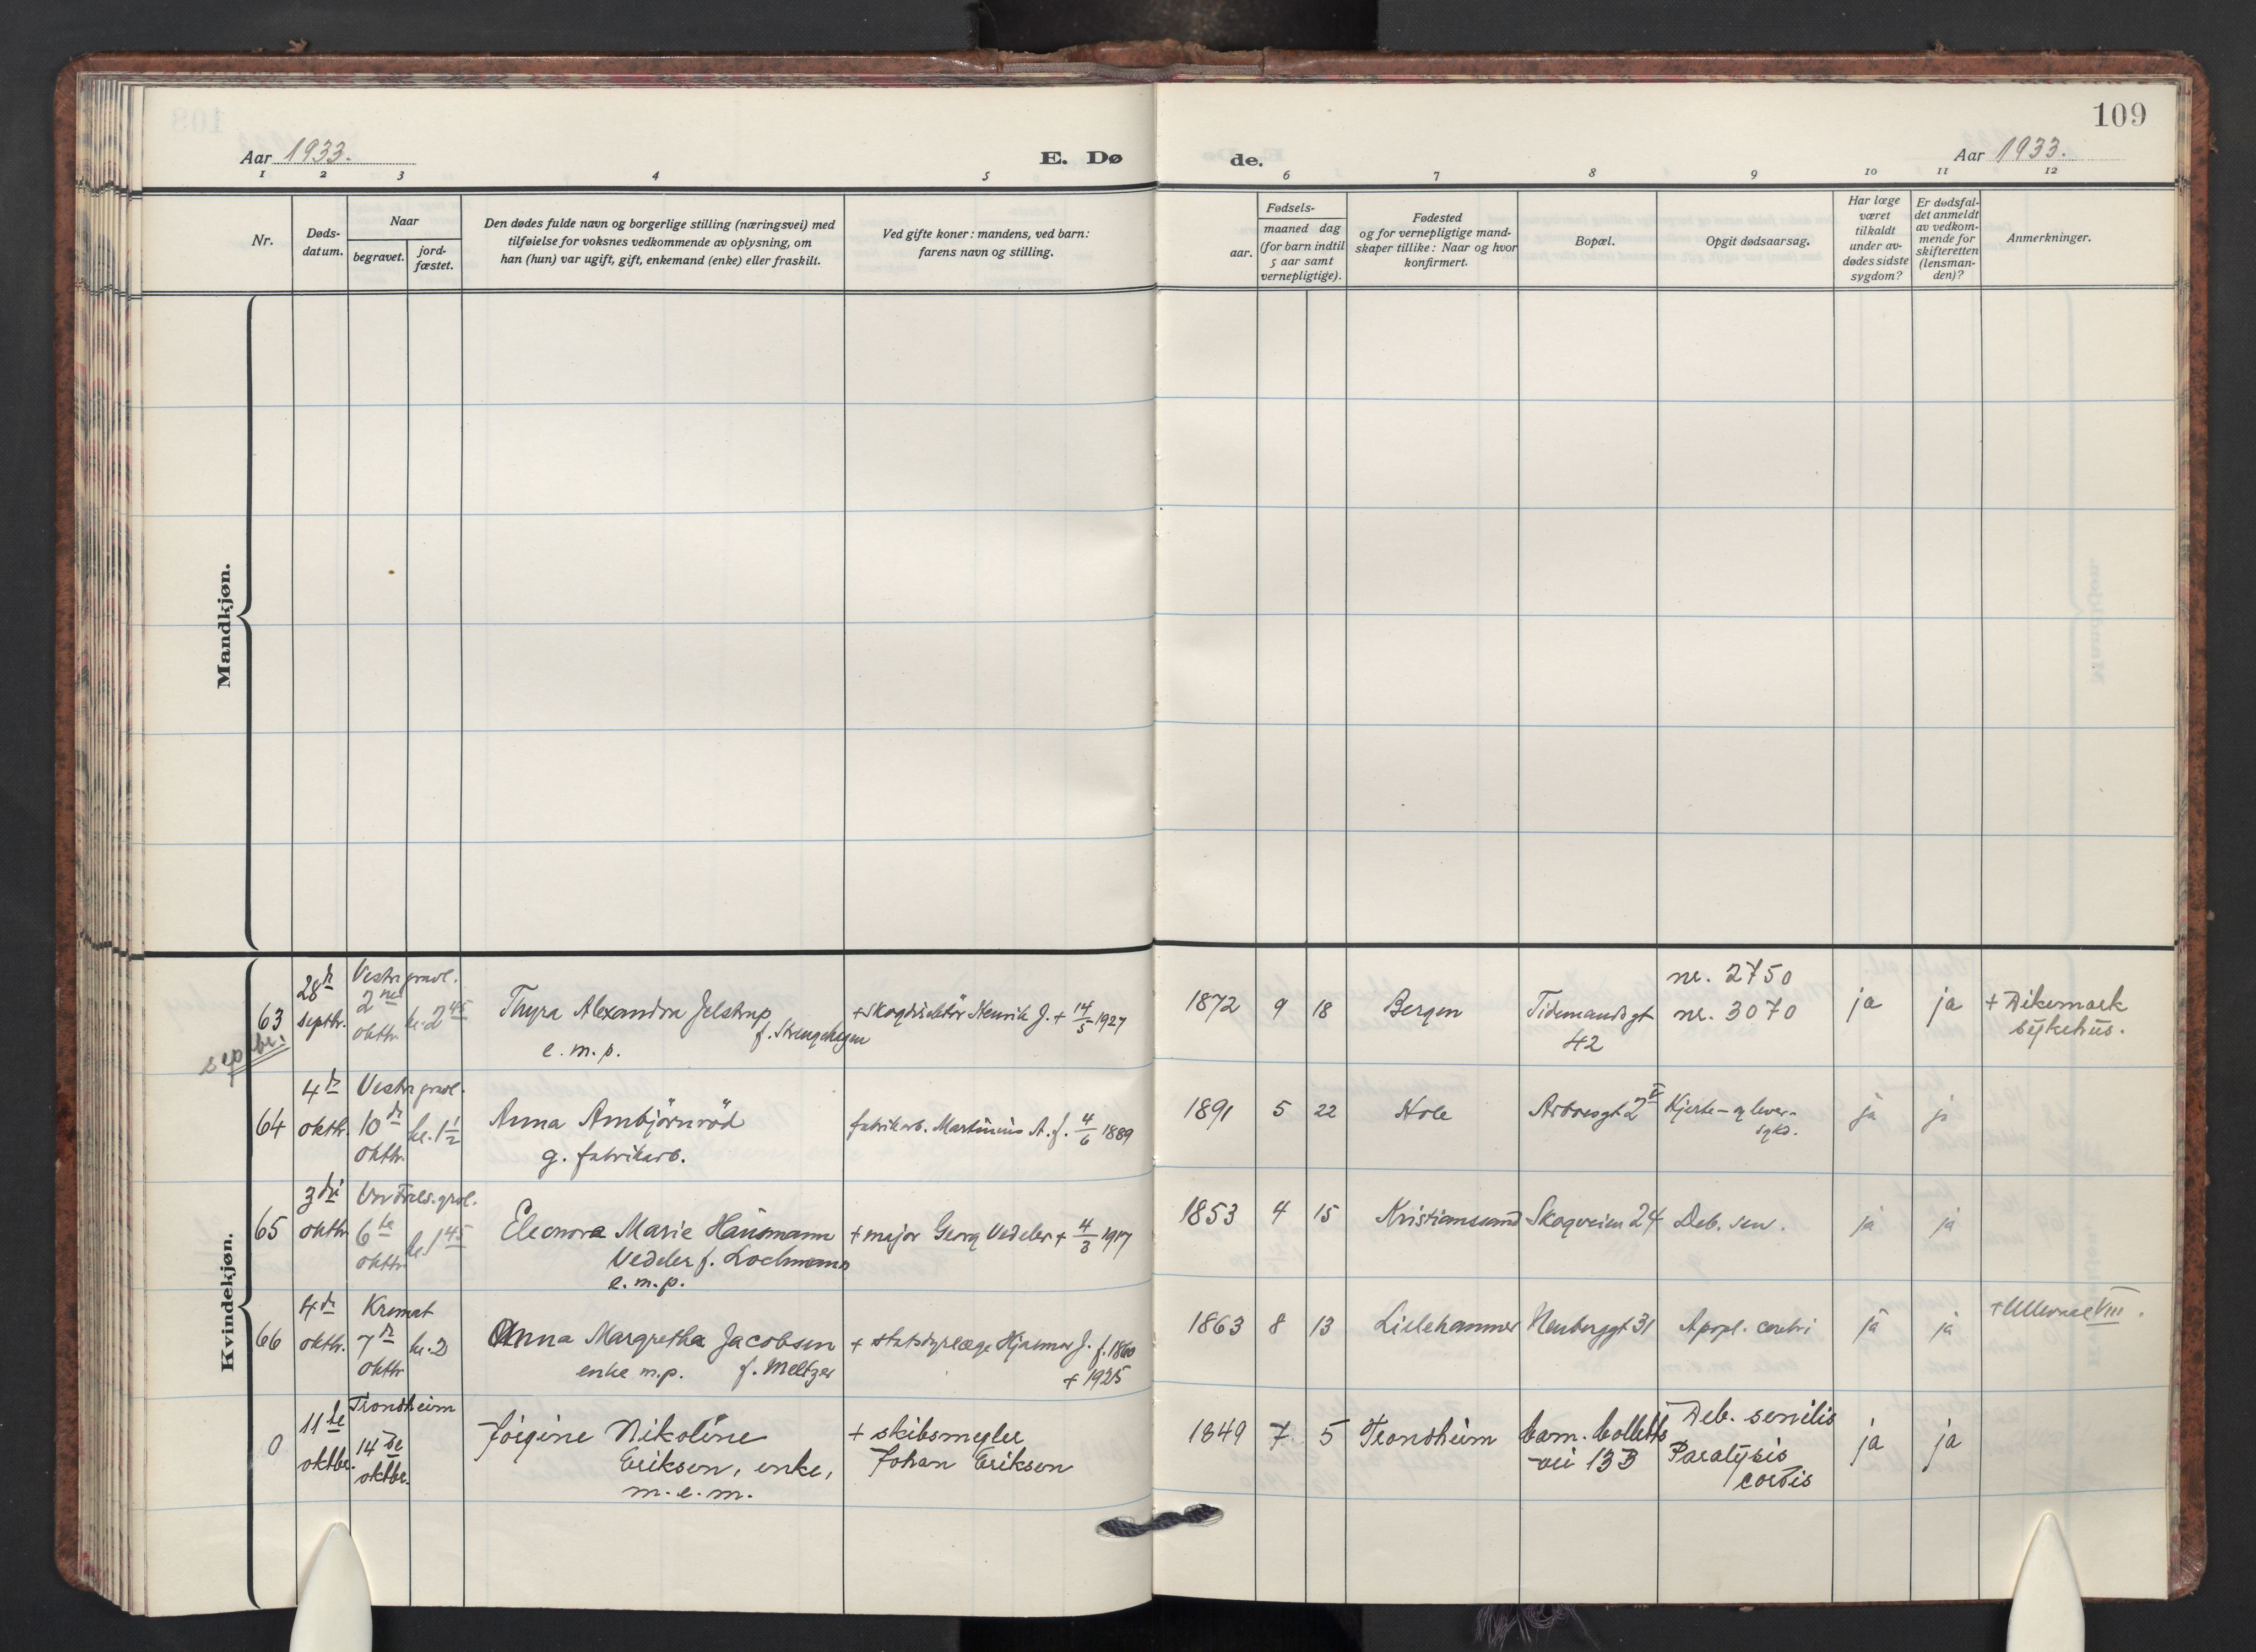 109
Aar 1933.
E. Dø
de.
Aar 1933.
1 2 3 4 5 6 7 8 9 10 11 12
Nr.
Døds-
datum.
Naar
begravet.
jord-
fæstet.
Den dødes fulde navn og borgerlige stilling (næringsvei) med
tilføielse for voksnes vedkommende av oplysning, om
han (hun) var ugift, gift, enkemand (enke) eller fraskilt.
Ved gifte koner: mandens, ved barn:
farens navn og stilling.
Fødsels-
aar.
maaned dag
(for barn indtil
5 aar samt
vernepligtige).
Fødested
og for vernepligtige mand-
skaper tillike: Naar og hvor
konfirmert.
Bopæl.
Opgit dødsaarsag.
Har læge
været
tilkaldt
under av-
dødes sidste
sygdom?
Er dødsfal-
det anmeldt
av vedkom-
mende for
skifteretten
(lensman-
den)?
Anmerkninger.
Mandkjøn.
Kvindekjøn.
63
septbr.
28d
septbr.
Vestre gravl.
2
oktbr.
kl. 2 45
Thyra Alexandra Jelstrup
f. Strengehagen
e. m. p.
+ skogdirektør Henrik J. + 14/5 1927
1872 9 18
Bergen
Tidemandsgt
42
nr. 2750
nr. 3070
ja
ja
+ Dikemark
sykehus.
64
4d
oktbr.
Vestre gravl.
10d
oktbr.
kl. 1 1/2
Anna Ambjörnröd
g. fabrikarb.
fabrikarb. Martinius A. f. 4/6 1889
1891 5 22
Hole
Arboesgt 2
Hjerte- og lever-
sykd.
ja
ja
65
3di
oktbr
Vor Frels. grvl.
6te
oktbr
kl. 1 45
Eleonora Marie Hausmann
Vedeler f. Lochmann
e. m. p.
+ major Georg Vedeler + 4/3 1917
1853 4 15
Kristiansund
Skogveien 24
Deb. sen.
ja
ja
66
4d
oktbr.
Kremat
7d
oktbr
kl. 2
Anna Margretha Jacobsen
enke m.p. f. Meltzer
+ statsdyrlæge Hjalmar J. f. 1860
+ 1925
1863 8 13
Lillehammer
Neuberggt 31
Apopl. cerebri
ja
ja
+ Ullevaal VIII.
0
11te
oktbr.
Trondheim
14de
oktbr.
Jörgine Nikoline
Eriksen, enke,
m. e. m.
+ skibsmegler
Johan Eriksen
1849 7 5
Trondheim
Cam. Colletts
vei 13 B
Deb. senilis
Paralysis
cordis
ja
ja